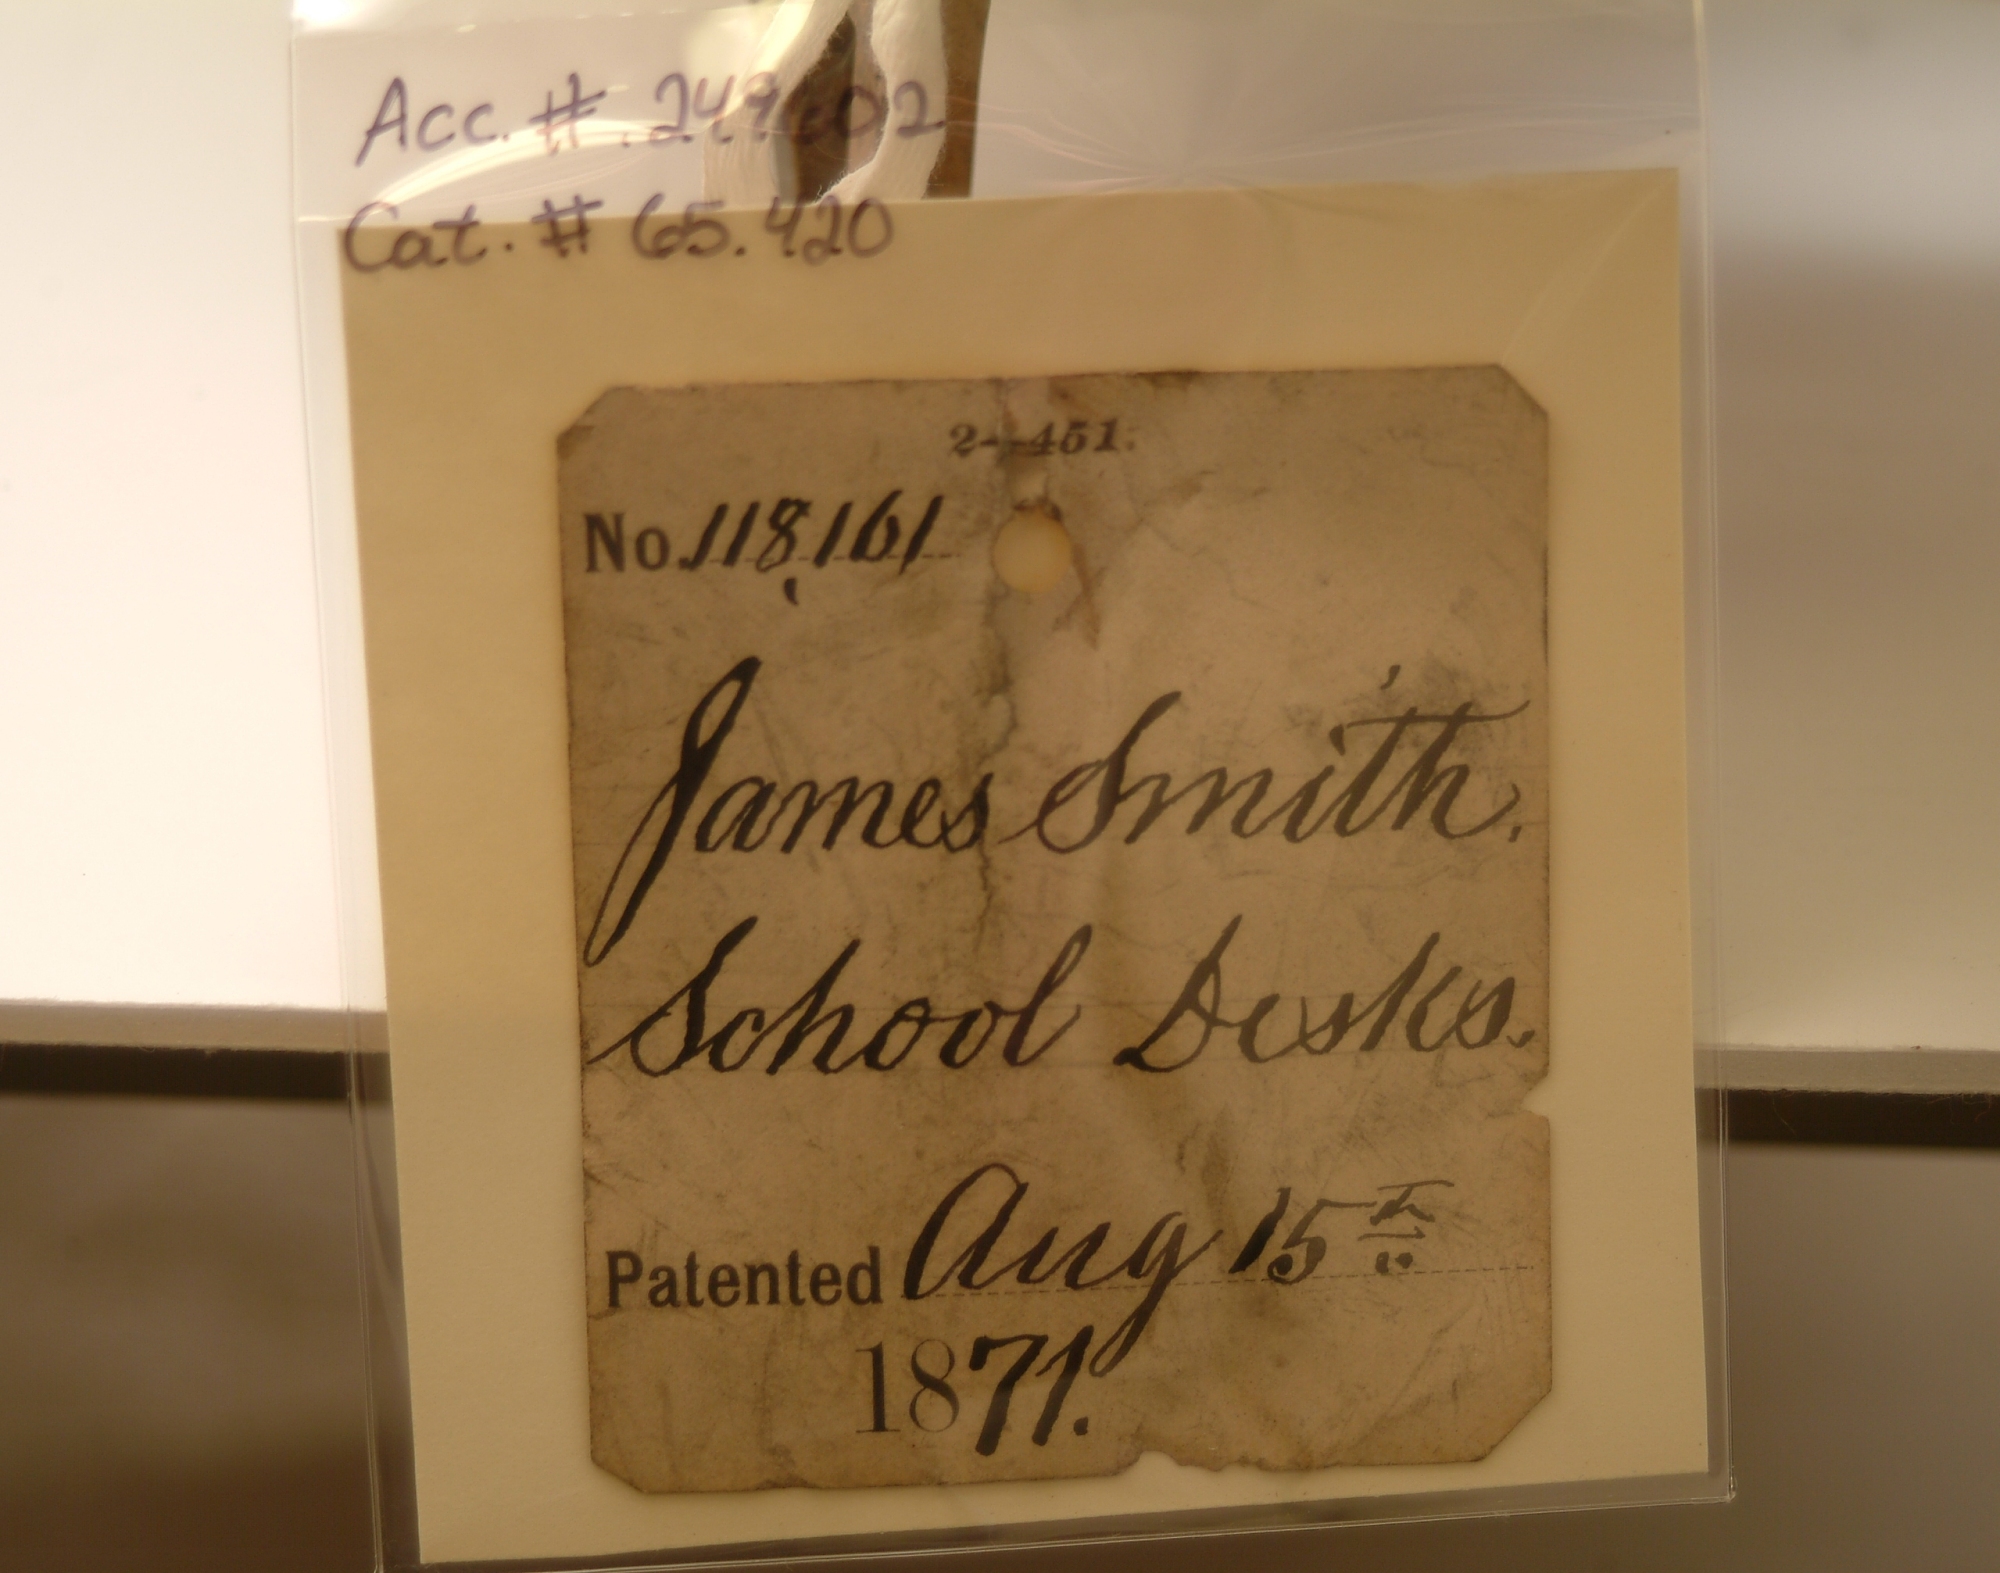 Acc. # 249602
Cat. # 65.420
2--451.
No. 118,161
James Smith.
School Desks.
Patented Aug 15th
1871.